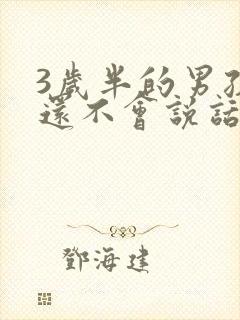 3歲半的男孩
還不會說話
鄧海建